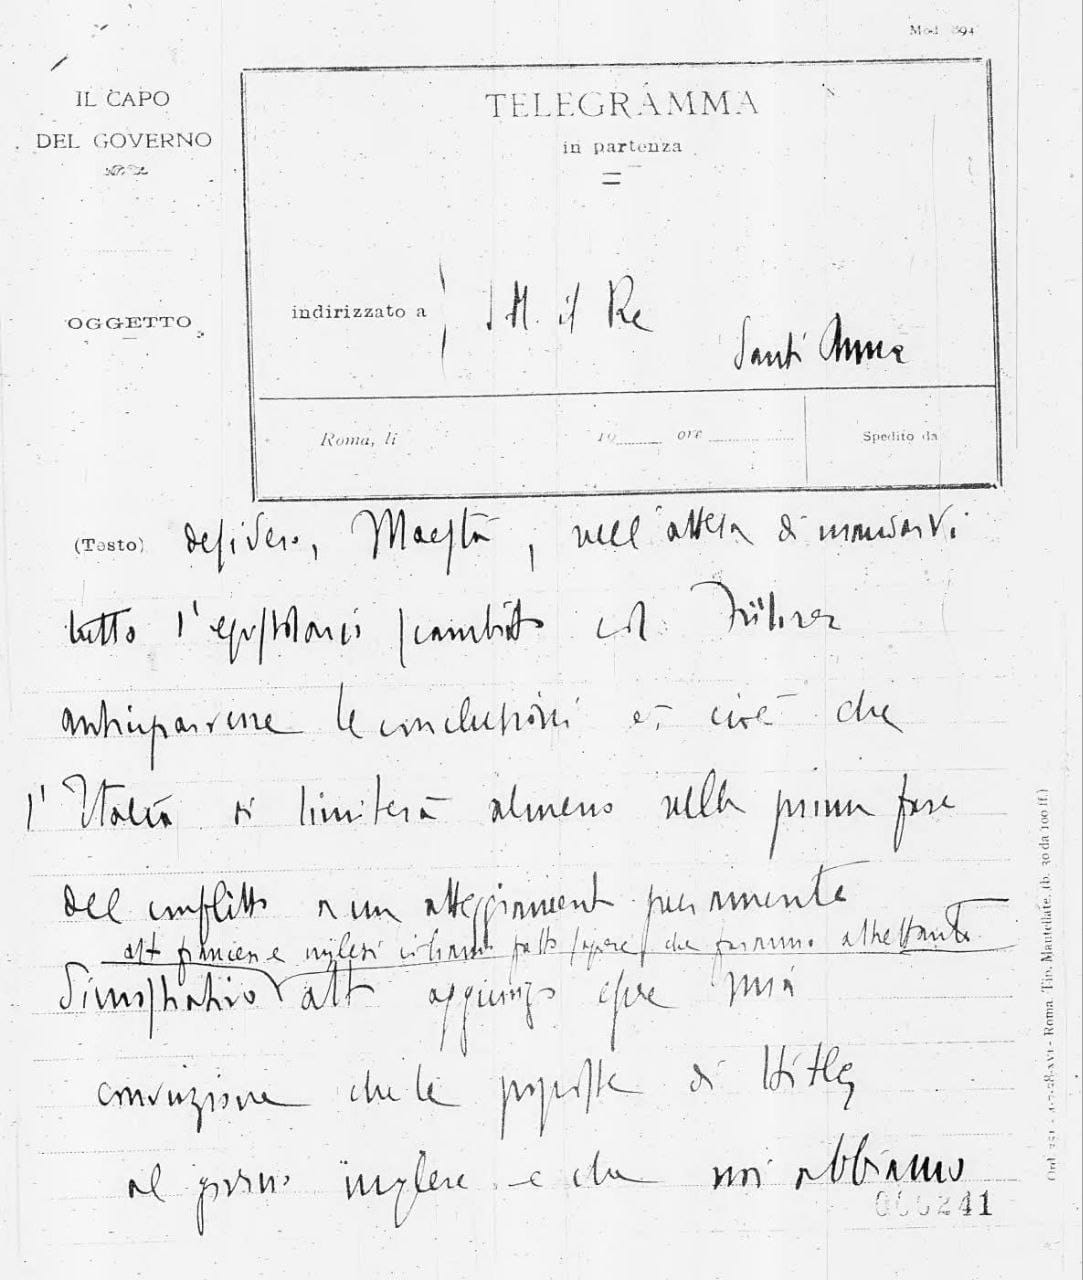 Mod. 894
IL CAPO
DEL GOVERNO
TELEGRAMMA
in partenza
OGGETTO
indirizzato a
S. M. il Re
Sant'Anna
Roma, li 19 ore
Spedito da
(Testo) desidero, Maestà, nell'attesa di mandarvi
tutto l'epistolario scambiato col Führer
anticiparvene le conclusioni e cioè che
l'Italia si limiterà almeno nella prima fase
del conflitto a un atteggiamento puramente
alt francesi e inglesi ci hanno fatto sapere che faranno altrettanto
dimostrativo alt aggiungo essere mia
convinzione che le proposte di Hitler
al governo inglese e che noi abbiamo
000241
Ord. 251 - 4-7-38-XVI - Roma, Tip. Mantellate. (b. 30 da 100 ff.)